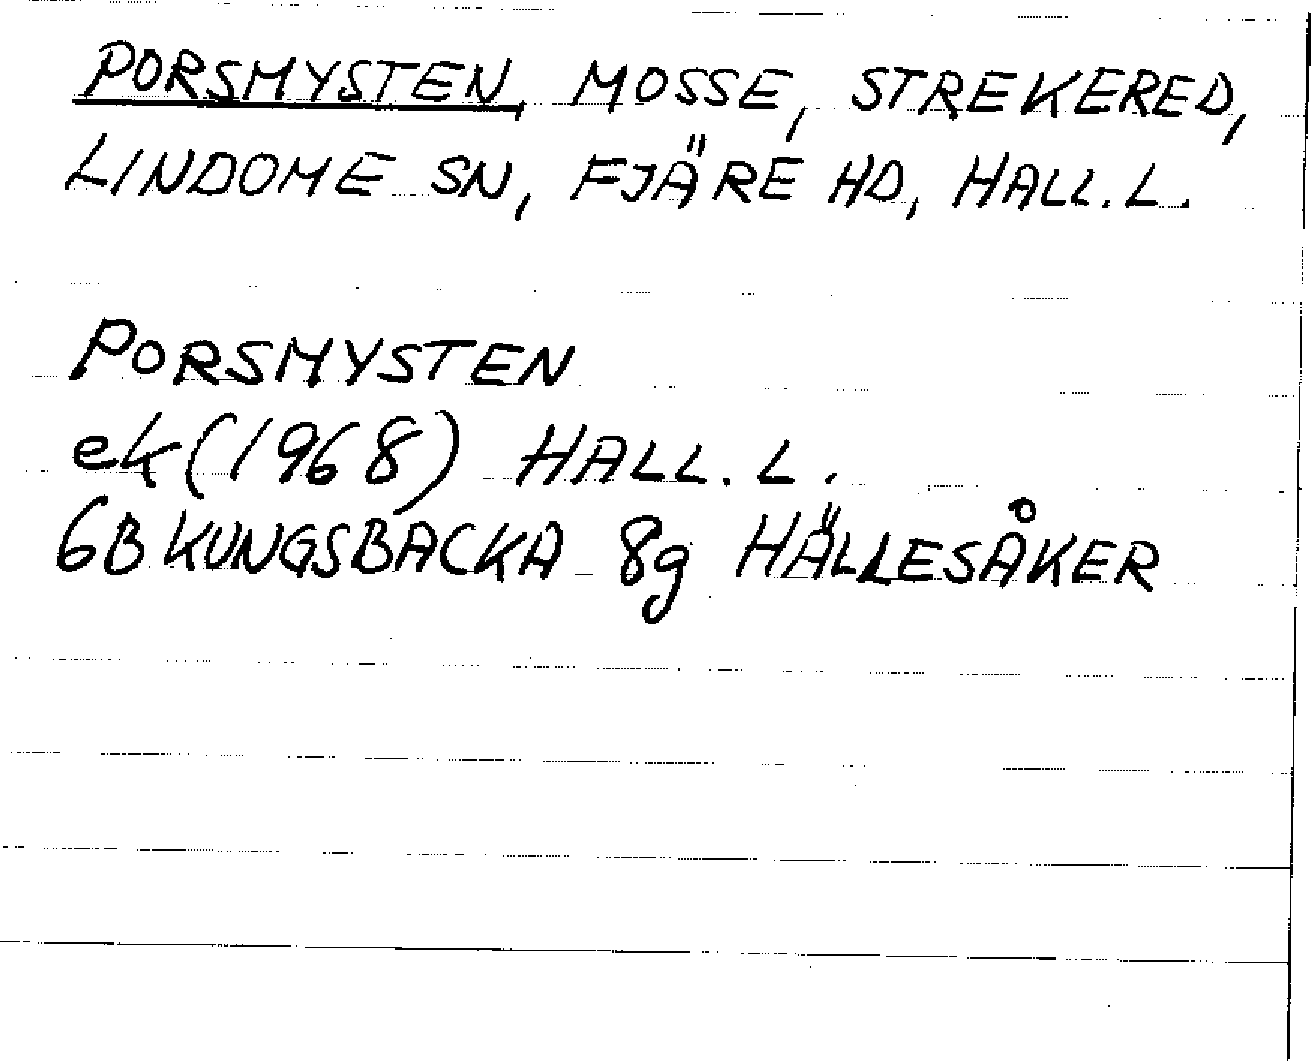 PORSMYSTEN, MOSSE, STREKERED,
LINDOME SN, FJÄRE HD, HALL. L.
PORSMYSTEN
ek (1968) HALL. L.
6B KUNGSBACKA 8g HÄLLESÅKER